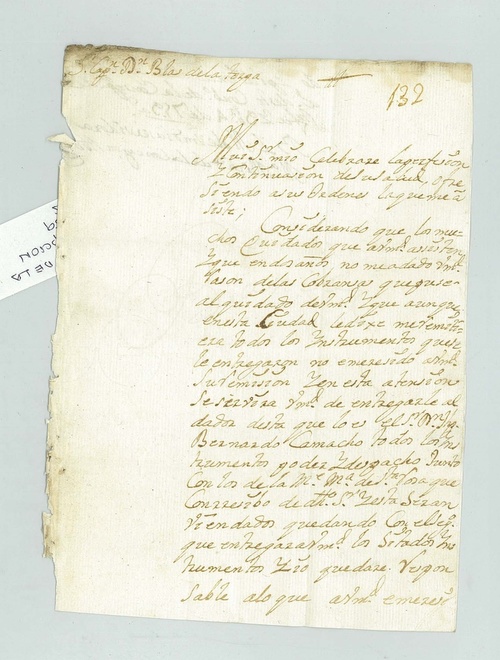 Sr. Capn. Dn. Blas de la Parga
132
Mui Sr. mio Celebrare la perfesion
Y Continuasion de su salud, ofre
siendo a sus ordenes la que me a
siste;
Considerando que los mu
chos Cuidados que a Vmd. assisten
Y que en dos años no me a dado Vmd.
rason de las Cobransas que puse
al quidado de Vmd. Y que aunque
en esta Ciudad le dixe me remiti
era todos los Instrumentos que se
le entregaron no e meresido a Vmd.
su remision Y en esta atension
se servira Vmd. de entregarle al
dador desta que lo es el Sr. Dn.
Bernardo Camacho todos los ins
trumentos poder Y despacho Junto
Con los de la Me. Ma. de que
Con resibo de dho. Sr. Y esta seran
vien dados quedando Con el
que entregara Vmd. los Sitados Ins
trumentos Y io quedare respon
sable a lo que a Vmd. e meresi
DE LA
CION